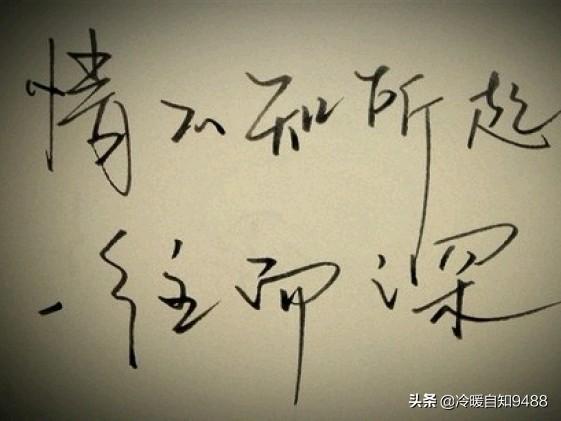 情不知所起
一往而深
头条 @冷暖自知9488